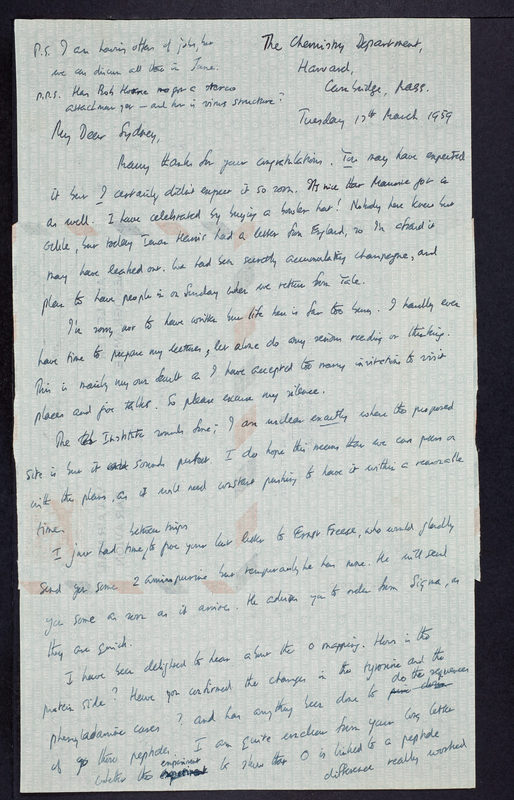 P.S. I am having offers of jobs, but
we can discuss all this in June.
P.P.S. Has Bob Horne got a
attachment yet — and how is virus structure?
The Chemistry Department,
Harvard,
Cambridge, Mass.
Tuesday 17th March 1959
My Dear Sydney,
Many thanks for your congratulations. You may have expected
it but I certainly didn't expect it so soon. It's nice that Maurice got it
as well. I have celebrated by buying a bowler hat! Nobody here knew but
Odile, but today had a letter from England, so I'm afraid it
may have leaked out. We had been secretly accumulating champagne, and
plan to have people in on Sunday when we return from Yale.
I'm sorry not to have written but life here is far too busy. I hardly even
have time to prepare my lectures, let alone do any serious reading or thinking.
This is mainly my own fault as I have accepted too many invitations to visit
places and give talks. So please excuse my silence.
The Institute sounds fine; I am unclear exactly where the proposed
site is but it sounds perfect. I do hope this means that we can press on
with the plans, as it will need constant pushing to have it within a reasonable
time.
I just had time, between trips, to give your last letter to Ernst Freese, who would gladly
send you some 2 aminopurine but temporarily he has none. He will send
you some as soon as it arrives. He advises you to order from Sigma, as
they are quick.
I have been delighted to hear about the O mapping. How is the
protein side? Have you confirmed the changes in the tyrosine and the
phenylalanine cases? and has anything been done to do the sequences
of these peptides. I am quite unclear from your long letter
whether the experiment to show that O is linked to a peptide
difference really worked